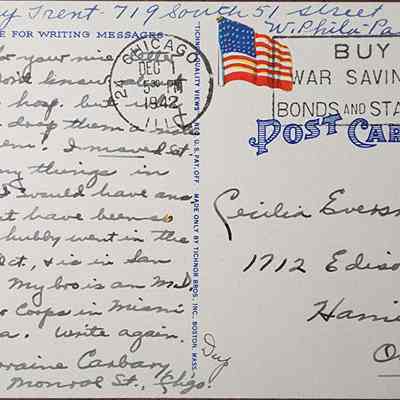 y Trent 719 South 51 street
W. Phila- Pa
E FOR WRITING MESSAGES
for your nice letter
know
hosp. but
drop them a
em! I moved St
ny things in
would have and
t have been so
hubby went in the
ct., & is in San
My bro is an M.D.
Corps in Miami
a. Write again.
rraine Carbary
Monroe St., Chgo.
CHICAGO
24
DEC 1
5 30 PM
1942
ILL.
BUY
WAR SAVIN
BONDS AND STA
TICHNOR QUALITY VIEWS REG. U.S. PAT. OFF. MADE ONLY BY TICHNOR BROS., INC., BOSTON, MASS.
POST CAR
Cecilia Evers
1712 Ediso
Hami
O